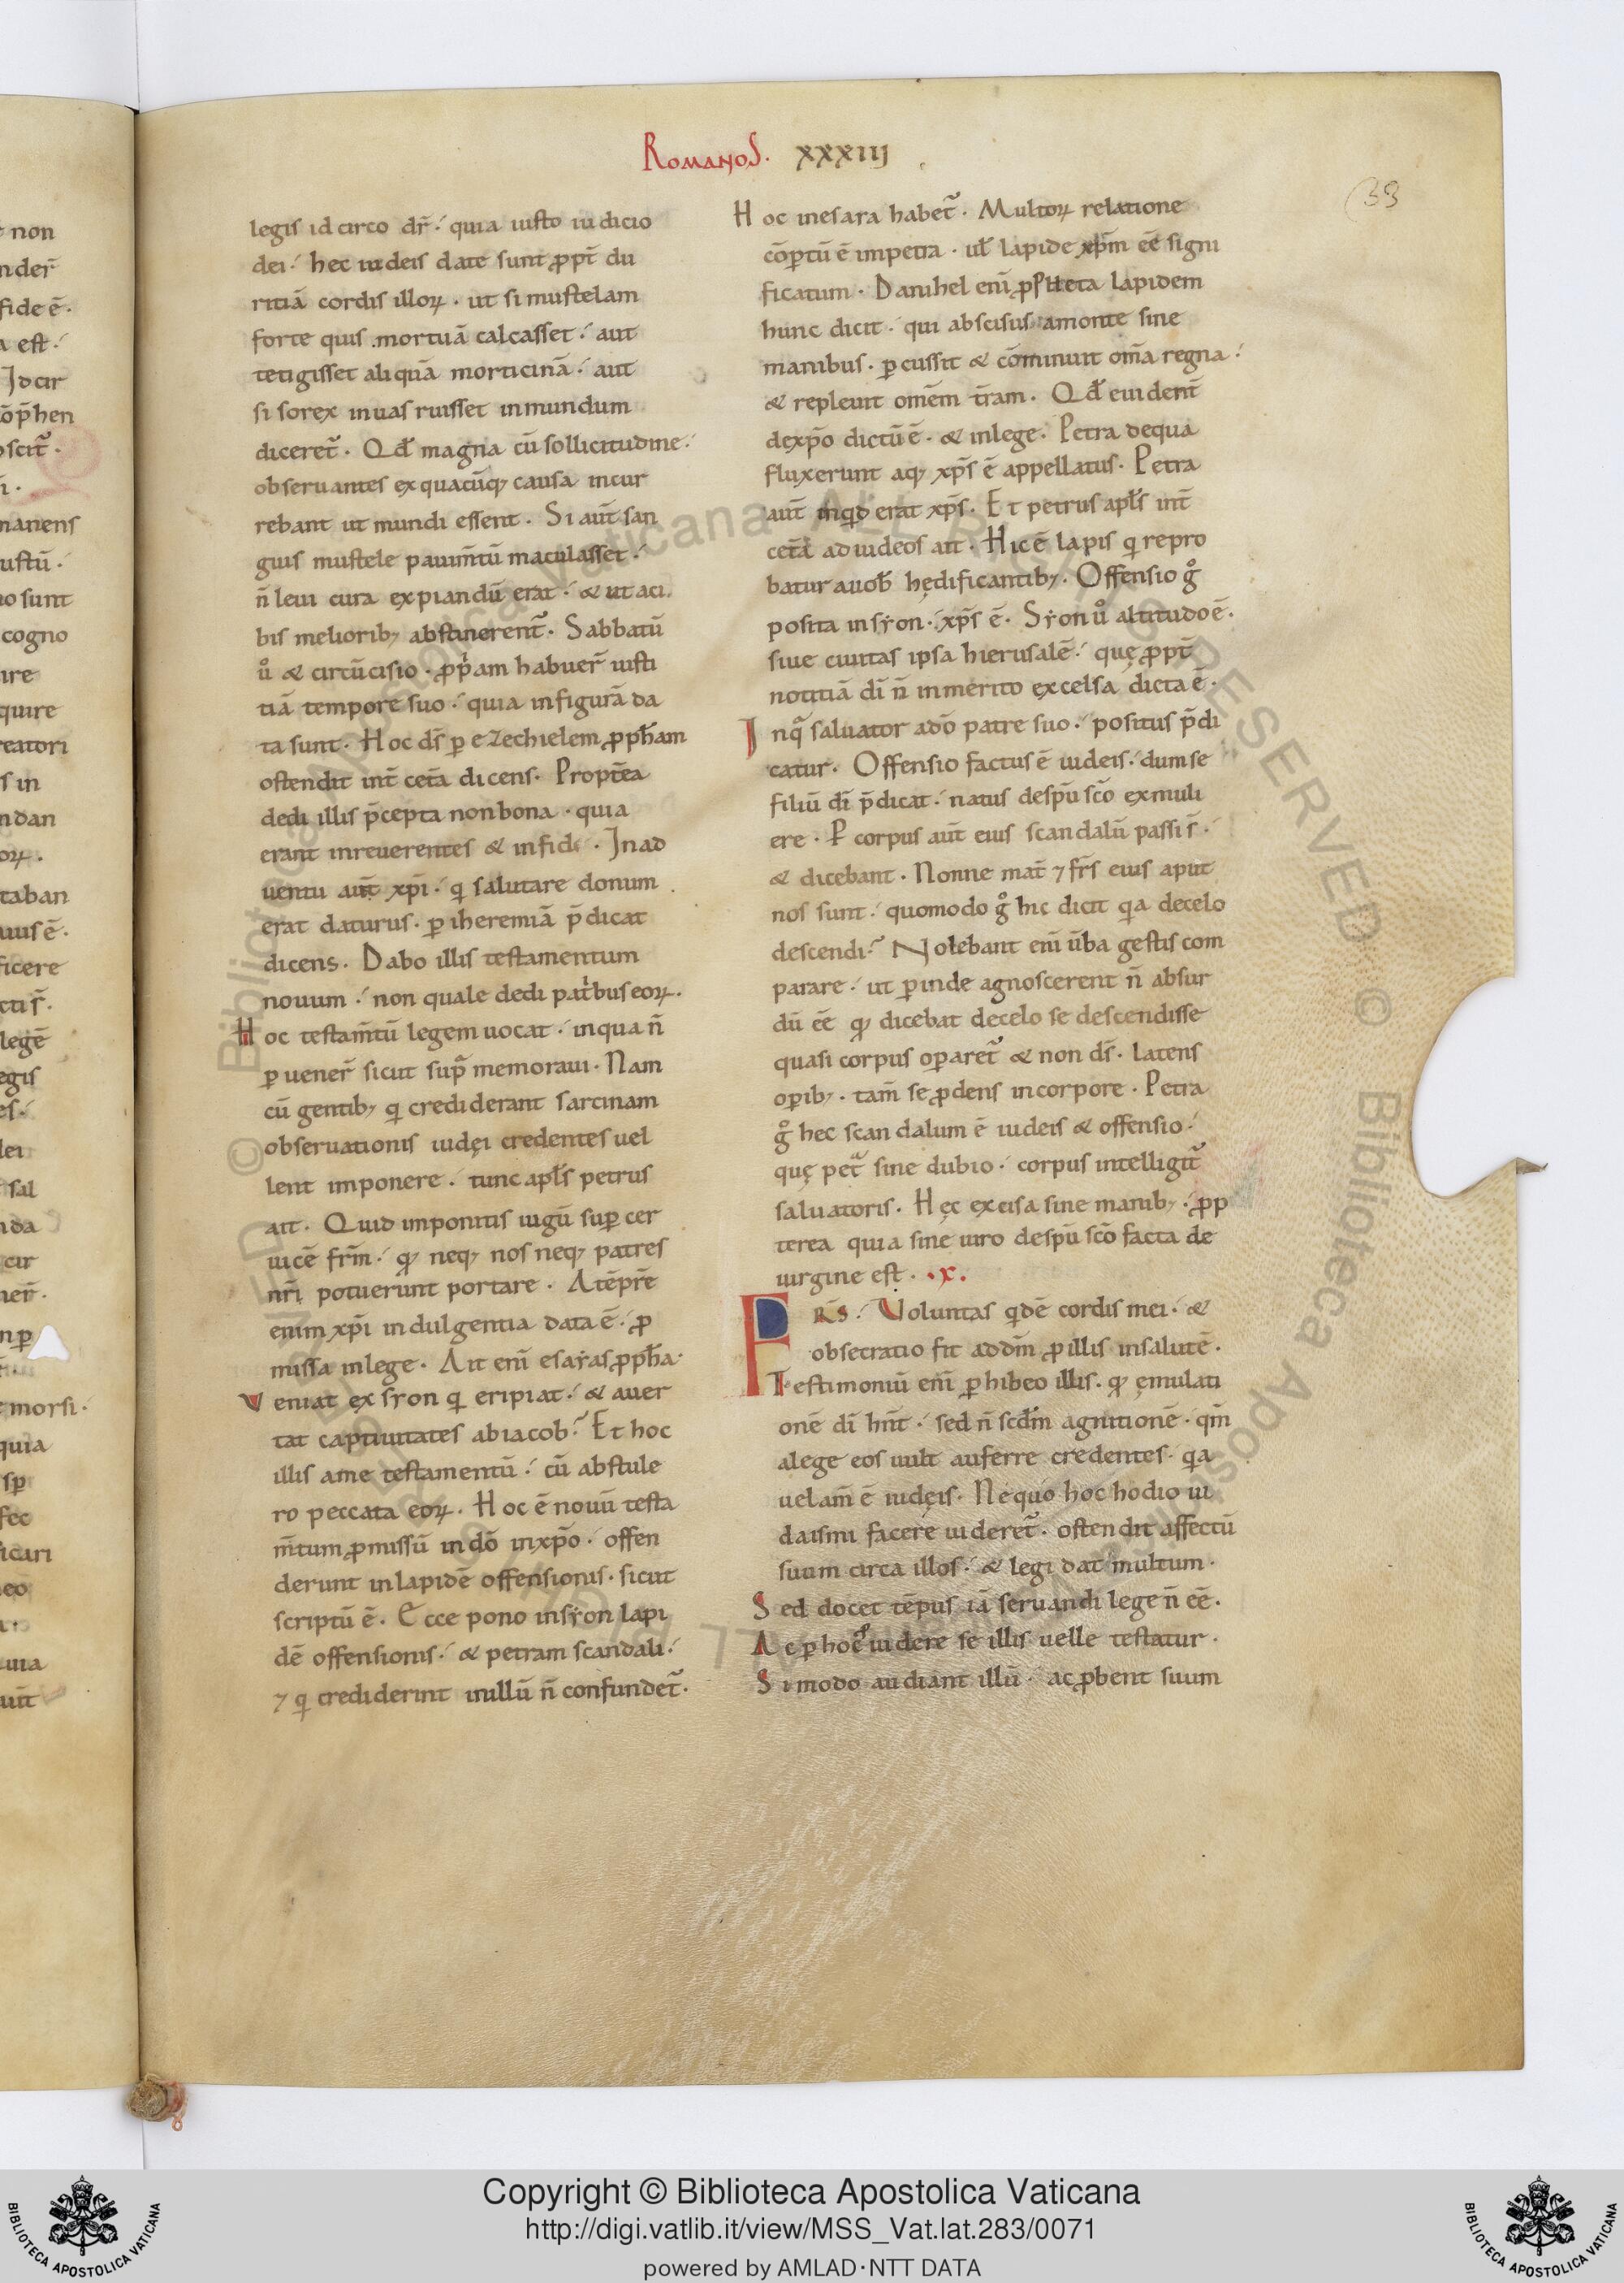 Romanos. XXXIIJ
33
legis id circo dr̄ quia iusto iudicio
dei hec iudeis date sunt ꝓpt̄ du
ritiā cordis illoꝝ. ut si mustelam
forte quis mortuā calcasset aut
tetigisset aliquā morticinā aut
si sorex inuas ruisset inmundum
diceret᷑. Qd̄ magna cū sollicitudine
obseruantes ex quacūqꝫ causa incur
rebant ut mundi essent. Si aut̄ san
guis mustele pauim̄tū maculasset
n̄ leui cura expiandū erat & ut aci
bis melioribꝫ abstinerent᷑. Sabbatū
ů & circūcisio ꝓp̄am habuer̄ iusti
tiā tempore suo quia infigurā da
ta sunt. Hoc ds̄ ꝑ ezechielem ꝓph̄am
ostendit int̄ cet̄a dicens. Propt̄ea
dedi illis p̄cepta nonbona quia
erant inreuerentes & infid. Inad
uentu aut̄ xp̄i qͥ salutare donum
erat daturus. ꝑ iheremiā p̄dicat
dicens. Dabo illis testamentum
nouum non quale dedi patͥbus eoꝝ.
Hoc testam̄tū legem uocat inqua n̄
ꝑuener̄ sicut supͣ memoraui. Nam
cū gentibꝫ qͥ crediderant sarcinam
obseruationis iudęi credentes uel
lent imponere. tunc apls̄ petrus
ait. Quid imponitis iugū suꝑ cer
uicē frm̄ qꝫ neqꝫ nos neqꝫ patres
nr̄i potuerunt portare. Atēpr̄e
enim xp̄i indulgentia data ē ꝓ
missa inlege. Ait eni̅ esaẏas ꝓph̄a
Veniat ex sẏon qͥ eripiat & auer
tat captiuitates ab iacob. Et hoc
illis ame testamentū cū abstule
ro peccata eoꝝ. Hoc ē nouū testa
m̄tum ꝓmissū indō inxp̄o offen
derunt inlapidē offensionis. sicut
scriptū ē. Ecce pono insẏon lapi
dē offensionis & petram scandali
⁊ qͥ crediderint inillū n̄ confundet᷑.
Hoc inesara habet᷑. Multoꝝ relatione
cōꝑtū ē impetra ul̄ lapide xp̄m eē signi
ficatum. Danihel eni̅ ꝓpheta lapidem
hunc dicit qui abscisus amonte sine
manibus. ꝑcussit & cōminuit om̄a regna
& repleuit om̄em tr̄am. Qd̄ euident̄
dexp̄o dictū ē. & inlege. Petra dequa
fluxerunt aqꝫ xp̄s ē appellatus. Petra
aut̄ inqͥd erat xp̄s. Et petrus apl̄s int̄
cet̄a adiudeos ait. Hic ē lapis qͥ repro
batur auob̄ hędificantibꝫ. Offensio g̊
posita insẏon xp̄s ē. Sẏon ů altitudo ē.
siue ciuitas ipsa hierusalē quę ꝓpt̄
notitiā dī n̄ inmerito excelsa dicta ē.
Inqͣ saluator adō patre suo positus p̄di
catur. Offensio factus ē iudeis dumse
filiū dī p̄dicat natus despū scō exmuli
ere. P corpus aut̄ eius scandalū passi s̄
& dicebant. Nonne mat̄ ⁊ fr̄s eius aput
nos sunt quomodo g̊ hic dicit qͥa decelo
descendi? Nolebant eni̅ ūba gestis com
parare ut ꝑinde agnoscerent n̄ absur
dū eē qꝫ dicebat decelo se descendisse
quasi corpus oꝑaret᷑ & non ds̄. latens
oꝑibꝫ. tam̄ se ꝓdens incorpore. Petra
g̊ hec scandalum ē iudeis & offensio
quę pet᷑ sine dubio corpus intelligit᷑
saluatoris. Hęc excisa sine manibꝫ. ꝓp
terea quia sine uiro despū scō facta de
uirgine est. .x.
FRS Voluntas qͥdē cordis mei &
obsecratio fit addm̄ ꝓ illis insalutē.
Testimoniū eni̅ ꝑhibeo illis. qꝫ ęmulati
onē dī hn̄t sed n̄ scd̄m agnitionē. qm̄
alege eos uult auferre credentes. qͥa
uelam̄ ē iudęis. Nequo hoc hodio iu
daismi facere uideret᷑. ostendit affectū
suum circa illos & legi dat multum.
Sed docet tēpus iā seruandi lege n̄ eē.
Ac ꝑ hoc ꝓuidere se illis uelle testatur.
Si modo audiant illū ac ꝓbent suum
Copyright © Biblioteca Apostolica Vaticana
http://digi.vatlib.it/view/MSS_Vat.lat.283/0071
powered by AMLAD·NTT DATA
BIBLIOTECA APOSTOLICA VATICANA
BIBLIOTECA APOSTOLICA VATICANA